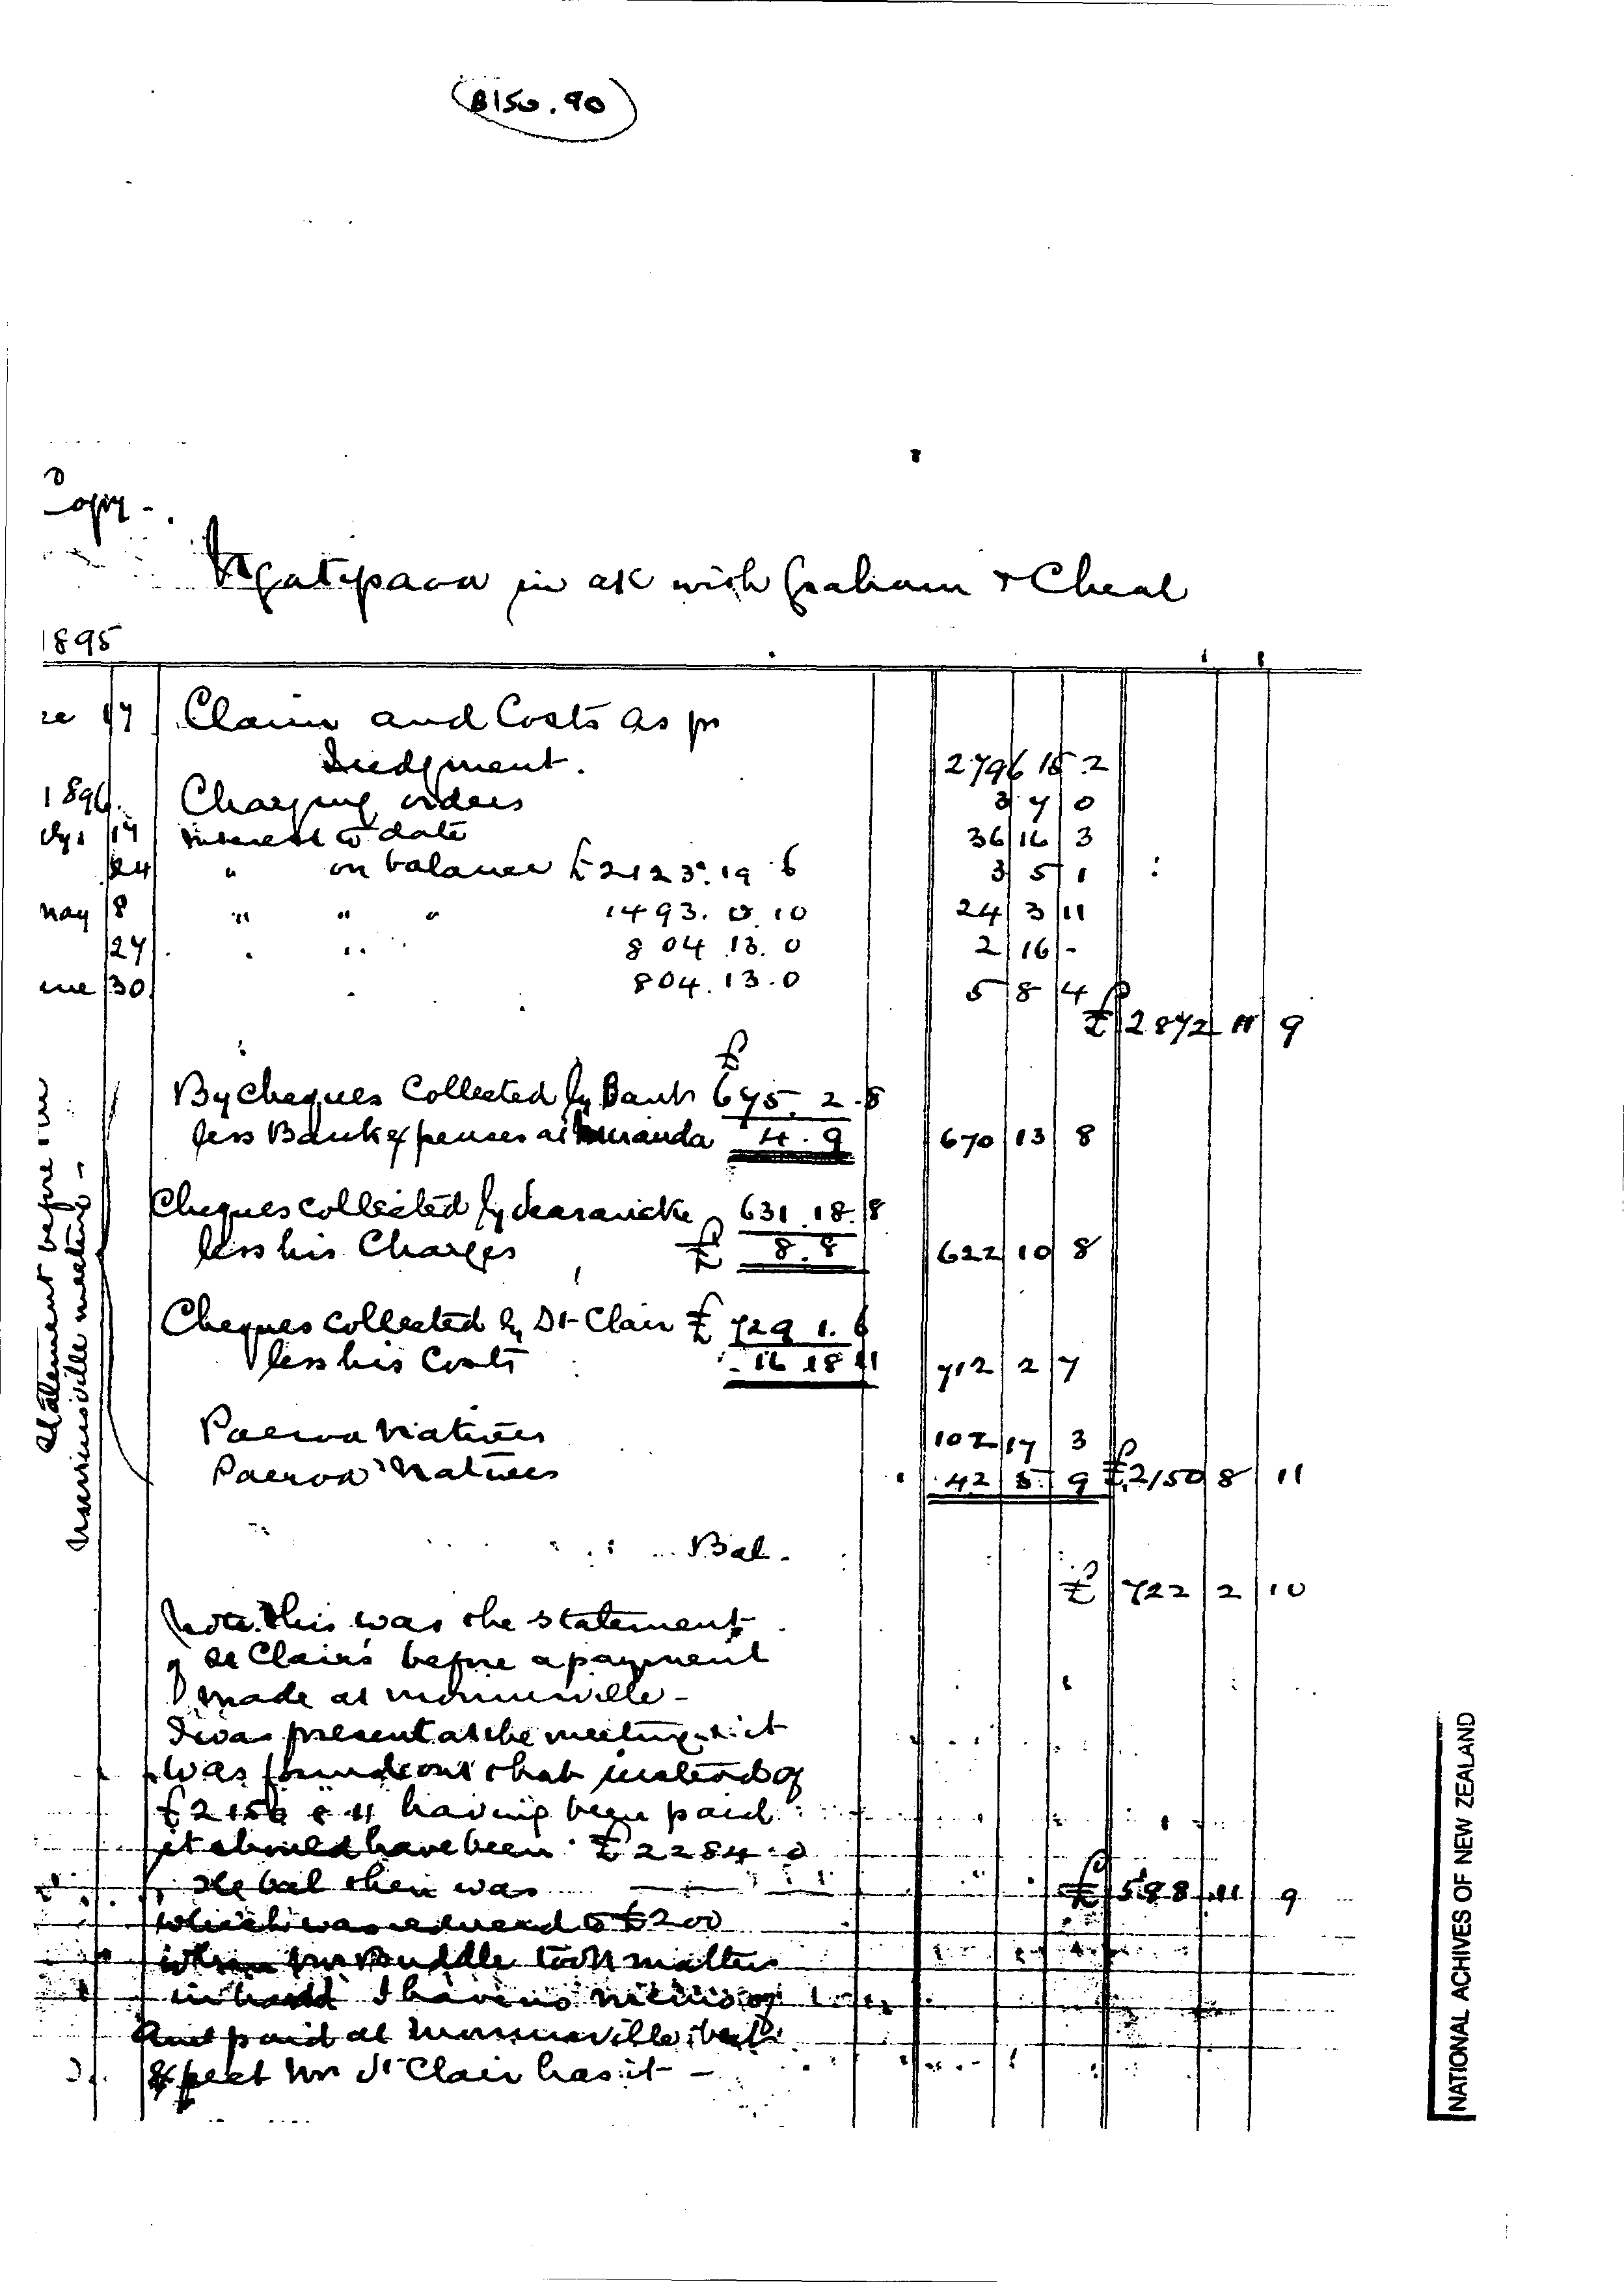 B150.90
Copy -
Ngatipaoa in a/c with Graham & Cheal
1895
17 Claim and Costs as pr
Judgment. 2796 15 2
1896. Charging orders 3 7 0
14 Interest to date 36 16 3
24 " on balance £2123.19.6 3 5 1
May 8 " " " 1493.0.10 24 3 11
27 804.13.0 2 16 -
30 804.13.0 5 8 4
£2872 11 9
£
By Cheques Collected by Bank 675.2.5
less Bank expenses at Miranda 4.9 670 13 8
Cheques collected by 631.18.8
less his Charges £ 8.8 622 10 8
Cheques collected by St Clair £729 1.6
less his Costs 16 18 11 712 2 7
Paeroa Natives 102 17 3
Paeroa Natives 42 5 9 £2150 8 11
Statement before
Morrinsville meeting -
Bal. £722 2 10
Note. This was the statement
of St Clair's before a payment
made at Morrinsville -
I was present at the meeting & it
was found out that instead of
£2150 8 11 having been paid
it should have been £2284.0
The bal then was £588 11 9
which was reduced to £200
when Mr Buddle took matter
in hand I have no memo of
Amt paid at Morrinsville but
expect Mr St Clair has it -
NATIONAL ACHIVES OF NEW ZEALAND